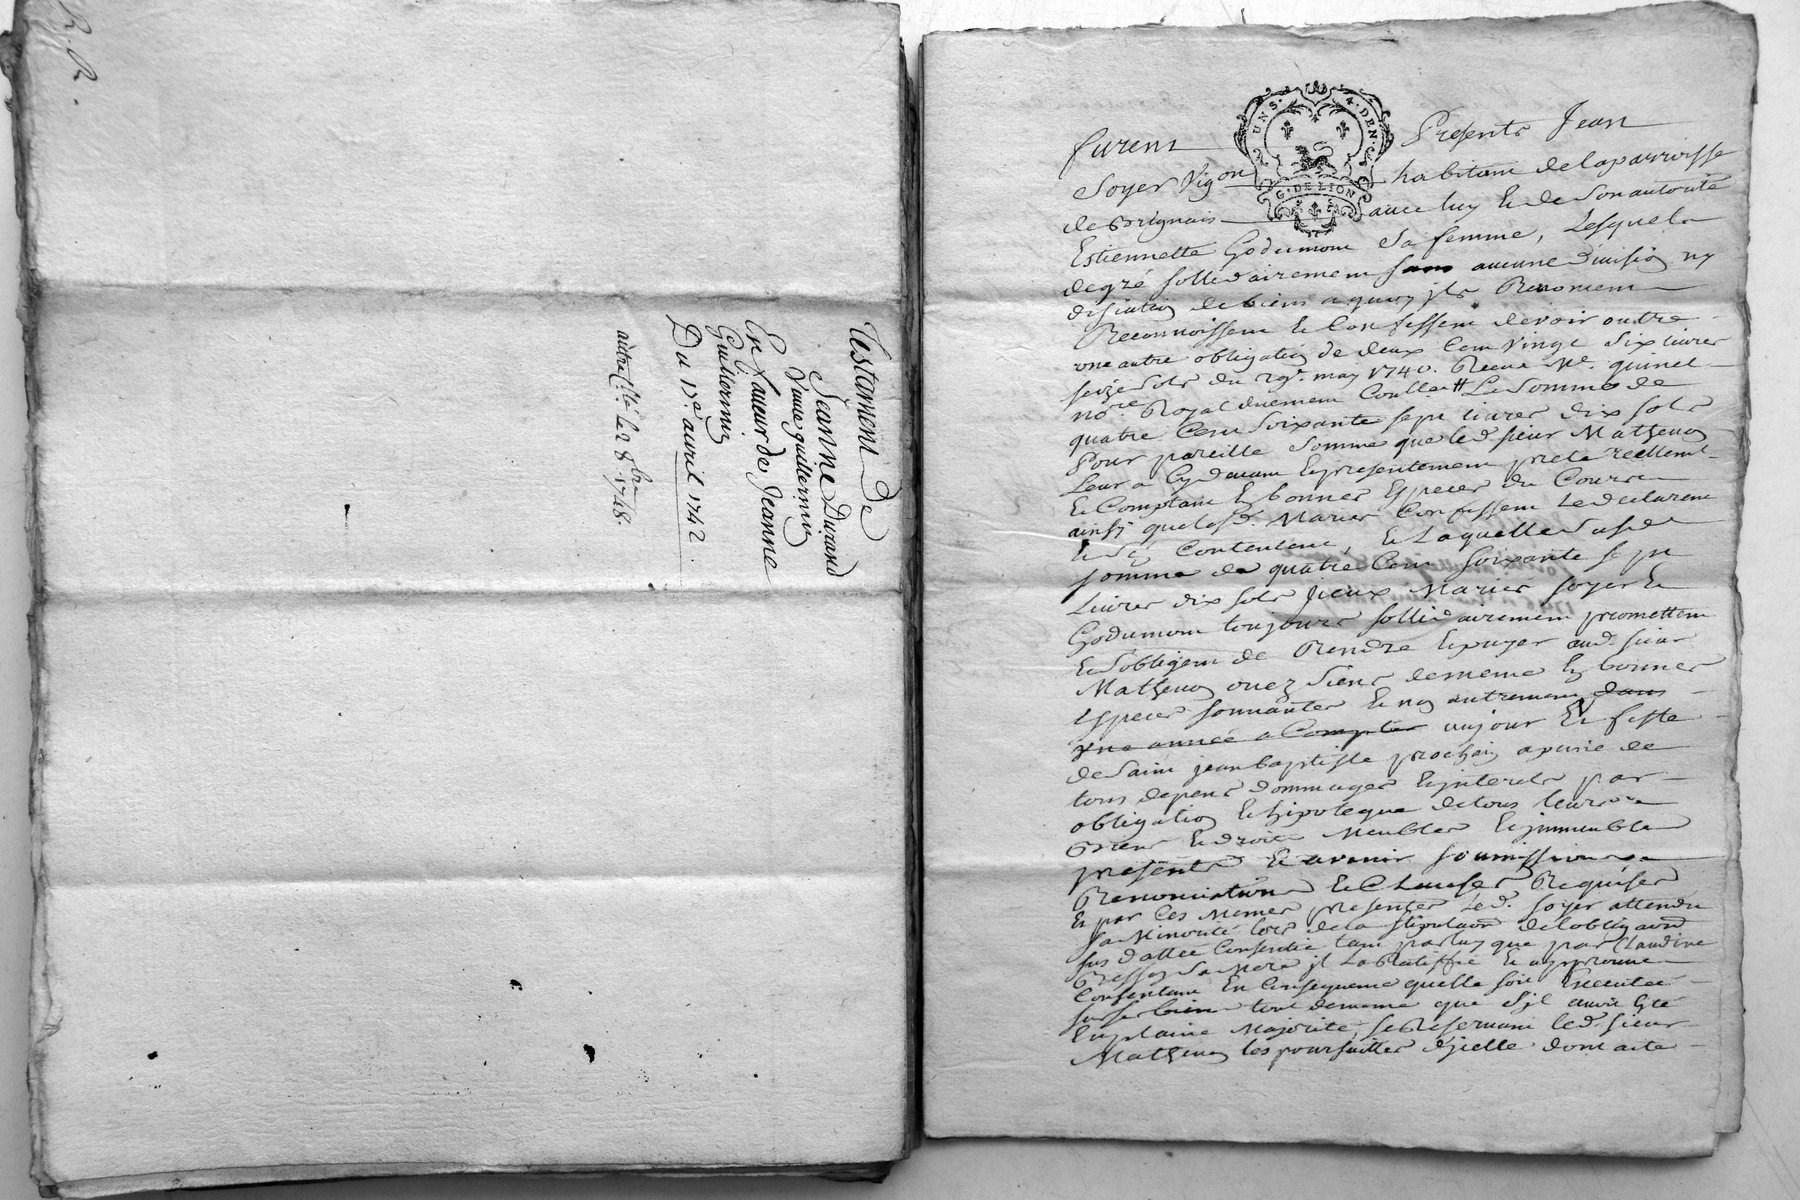 Testament De
Jeanne Durand
Veuve guillermin
En faveur de Jeanne
Guillermin
Du 17e avril 1742.
autre c. té le 2 8bre 1748.
UN S. 4. DEN.
G. DE LION
furent Presents Jean
Soyer Vigon habitant de la parroisse
de Brignais avec luy et de Son autorité
Estiennette Godumont Sa femme, Lesquels
de gré sollidairement sans aucune division ny
de biens a quoy jls Renoncent
Reconnoissent et Confessent devoir outre
une autre obligation de deux Cent Vingt Six livres
Seize Sols du 29e. may 1740. Receue Me. quinel
nore. Royal duement Conllée La Somme de
quatre Cent Soixante sept livres dix sols
Pour pareille Somme que led. sieur Mathevon
Leur a Cy devant et presentement preté réellemt.
et Comptant En bonnes Especes du Cours
ainsi que lesd. Mariés Confessent Le declarent
Et Sen Contentent, et Laquelle Susd.
somme de quatre Cent soixante sept
Livres dix sols jceux Mariés soyer et
Godumont toujours sollidairement promettent
et Sobligent de Rendre et payer aud. sieur
Mathevon ou ez Siens de meme En bonnes
Especes sonnantes et non autrement dans
une année a Compter aujour et feste
de Saint jean baptiste prochain a peine de
tous depens dommages et jnterets par
obligation et hipoteque de tous leurs
Biens et droits Meubles et jmmeubles
presents et avenir soumissions
Renonciations et Clauses Requises
Et par Ces Memes presentes Led. soyer attendu
Sa Minorité lors de la stipulaon de lobligaon
sus datteé Consentie tant par luy que par Claudine
Sa Mere jl La Ratiffie et approuve
Consentant En Consequence quelle soit Executée
sur ses biens tout de meme que sjl avoit Eté
En plaine Majorité, se Reservant led. sieur
Mathevon les poursuittes djcelle dont acte